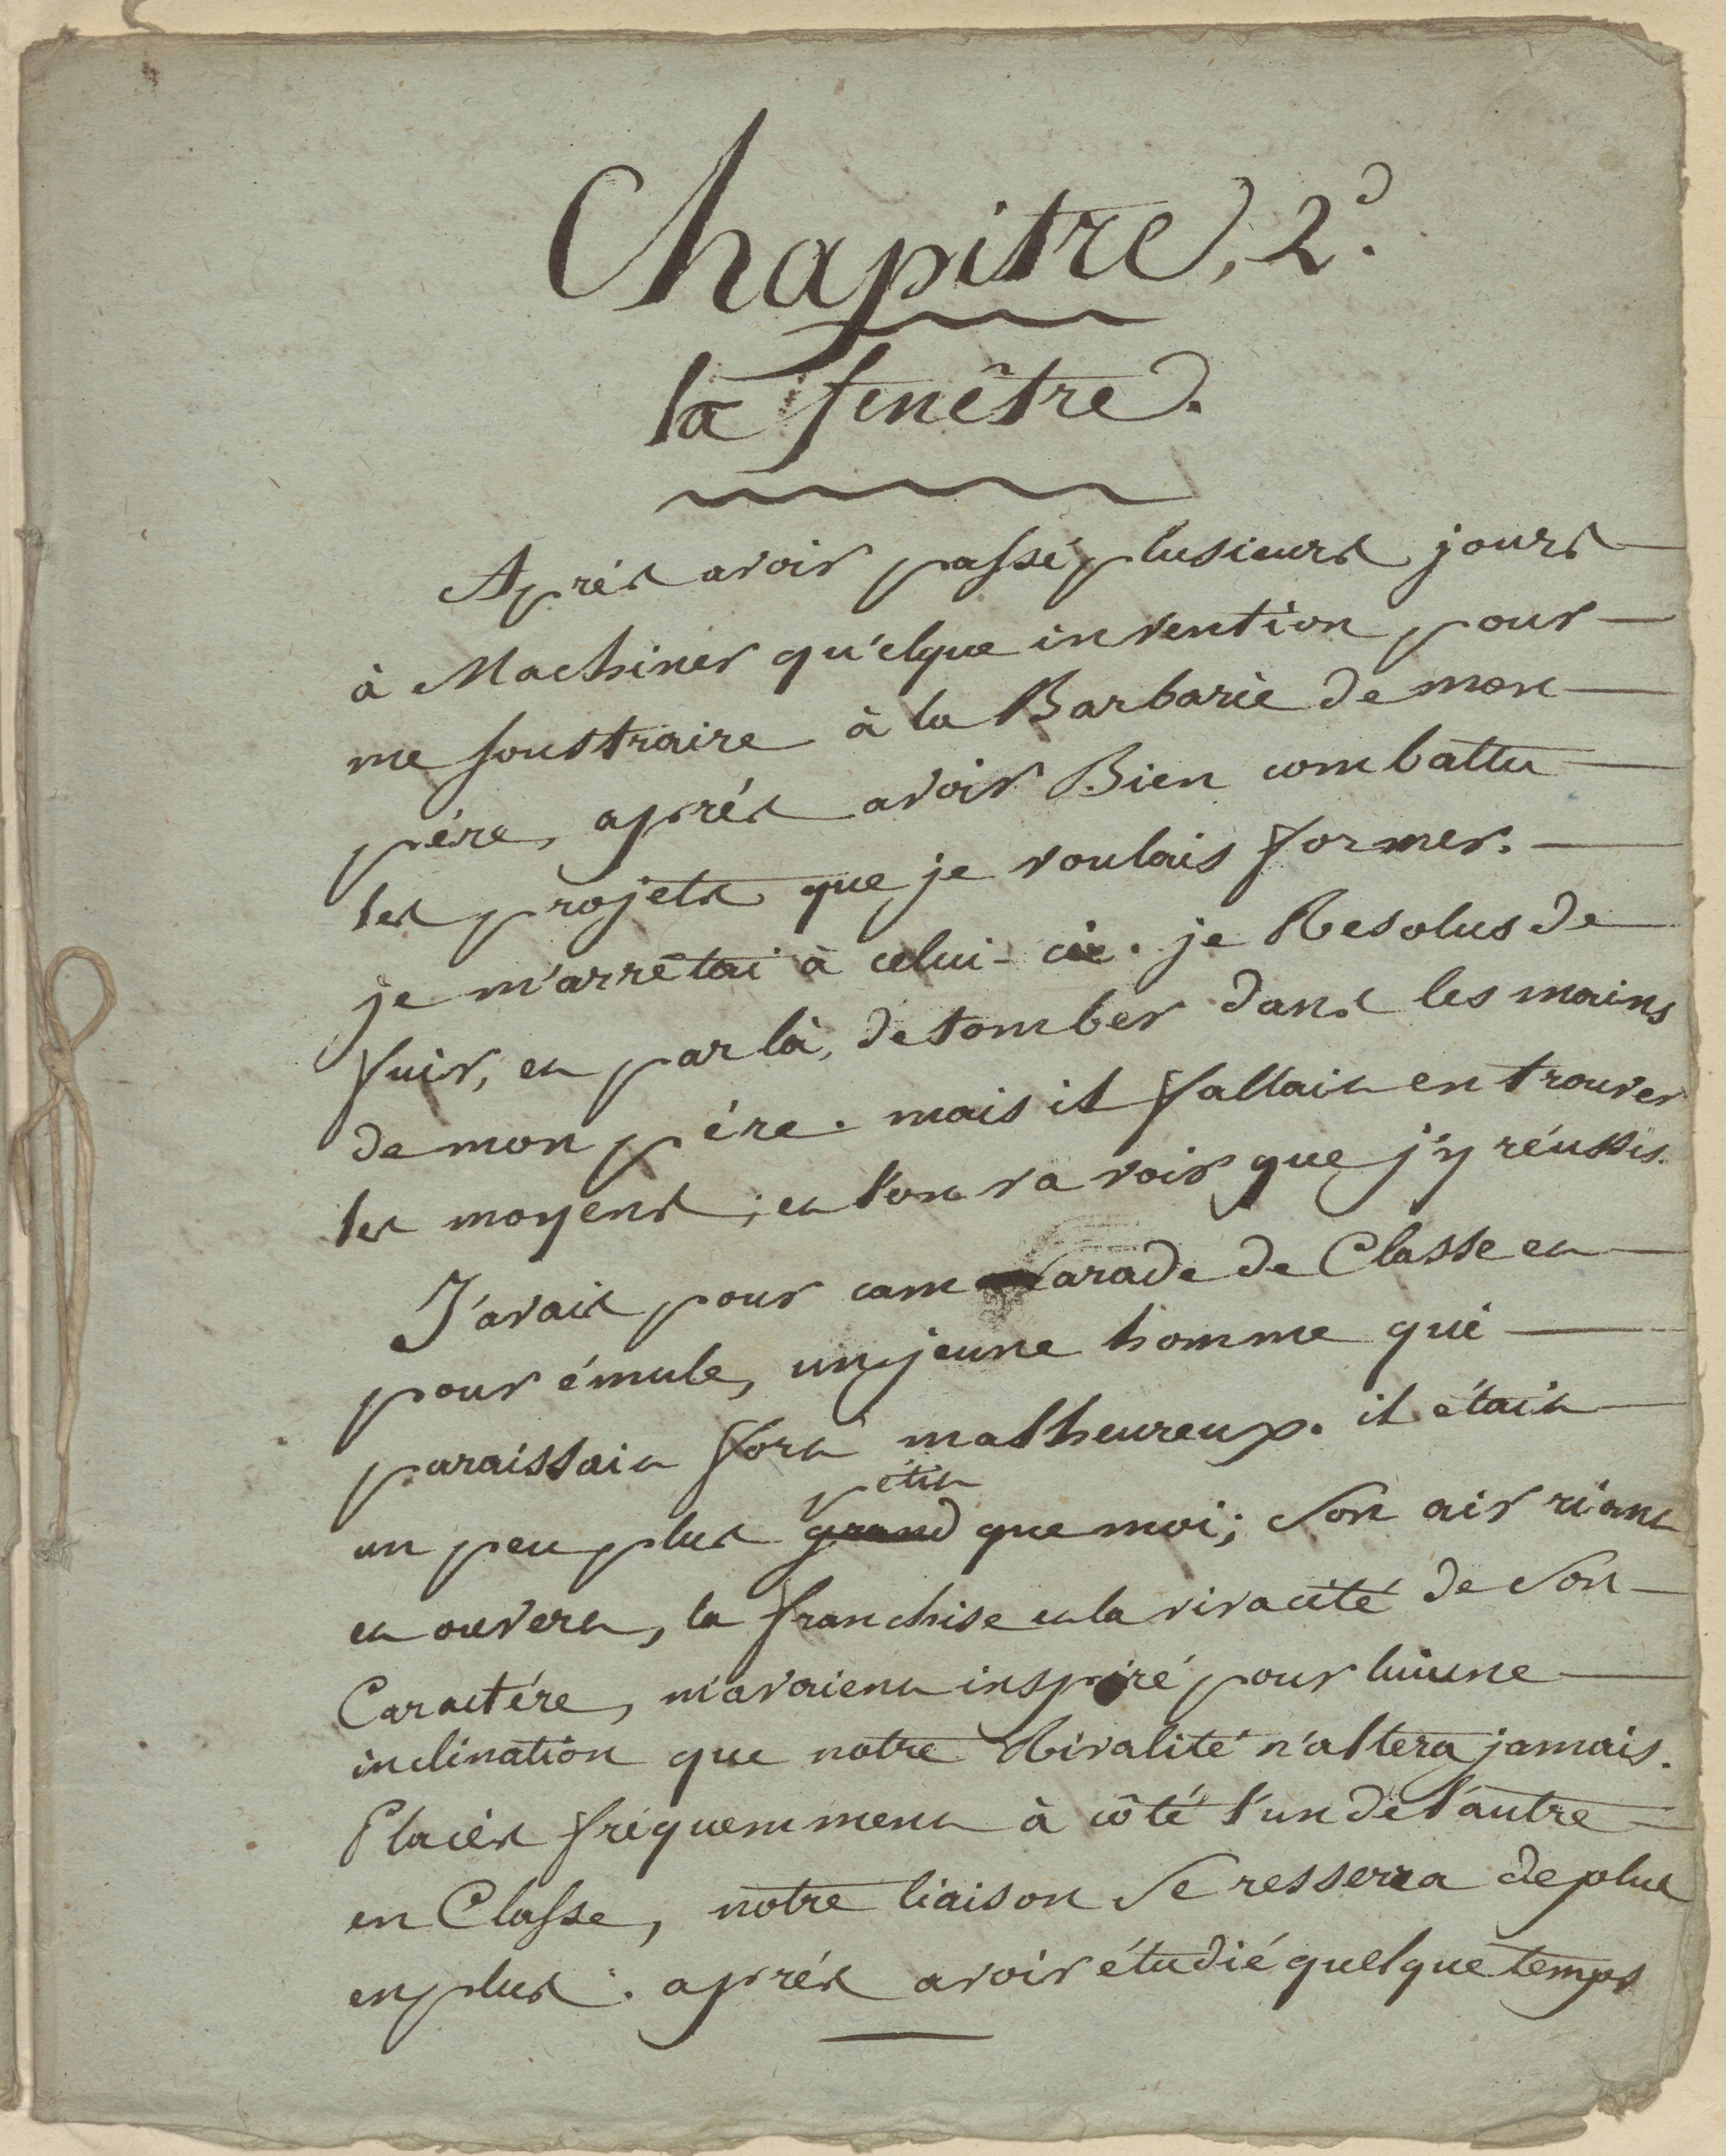 Chapitre, 2d.
la fenêtre.
Aprés avoir passé plusieurs jours
à Machiner qu'elque invention pour
me soustraire à la Barbarie de mon
pére, aprés avoir Bien combattu
les projets que je voulais former.
je m'arrêtai à celui-cie. je Resolus de
fuir, et par là, de tomber dans les mains
de mon pére. mais il fallait en trouver
les moyens; et l'on va voir que j'y réussis.
J'avais pour camarade de Classe et
pour émule, un jeune homme qui
paraissait fort malheureux. il était
petit
un peu plus grand que moi; son air riant
et ouvert, la franchise et la vivacité de son
Caractére, m'avaient inspiré pour lui une
inclination que notre Rivalité n'altera jamais.
Placés fréquemment à côté l'un de l'autre
en Classe, notre liaison se resserra de plus
en plus. aprés avoir étudié quelque temps